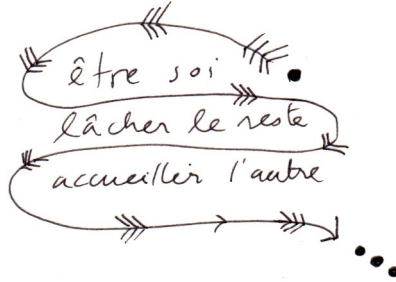 être soi
lâcher le reste
accueillir l'autre